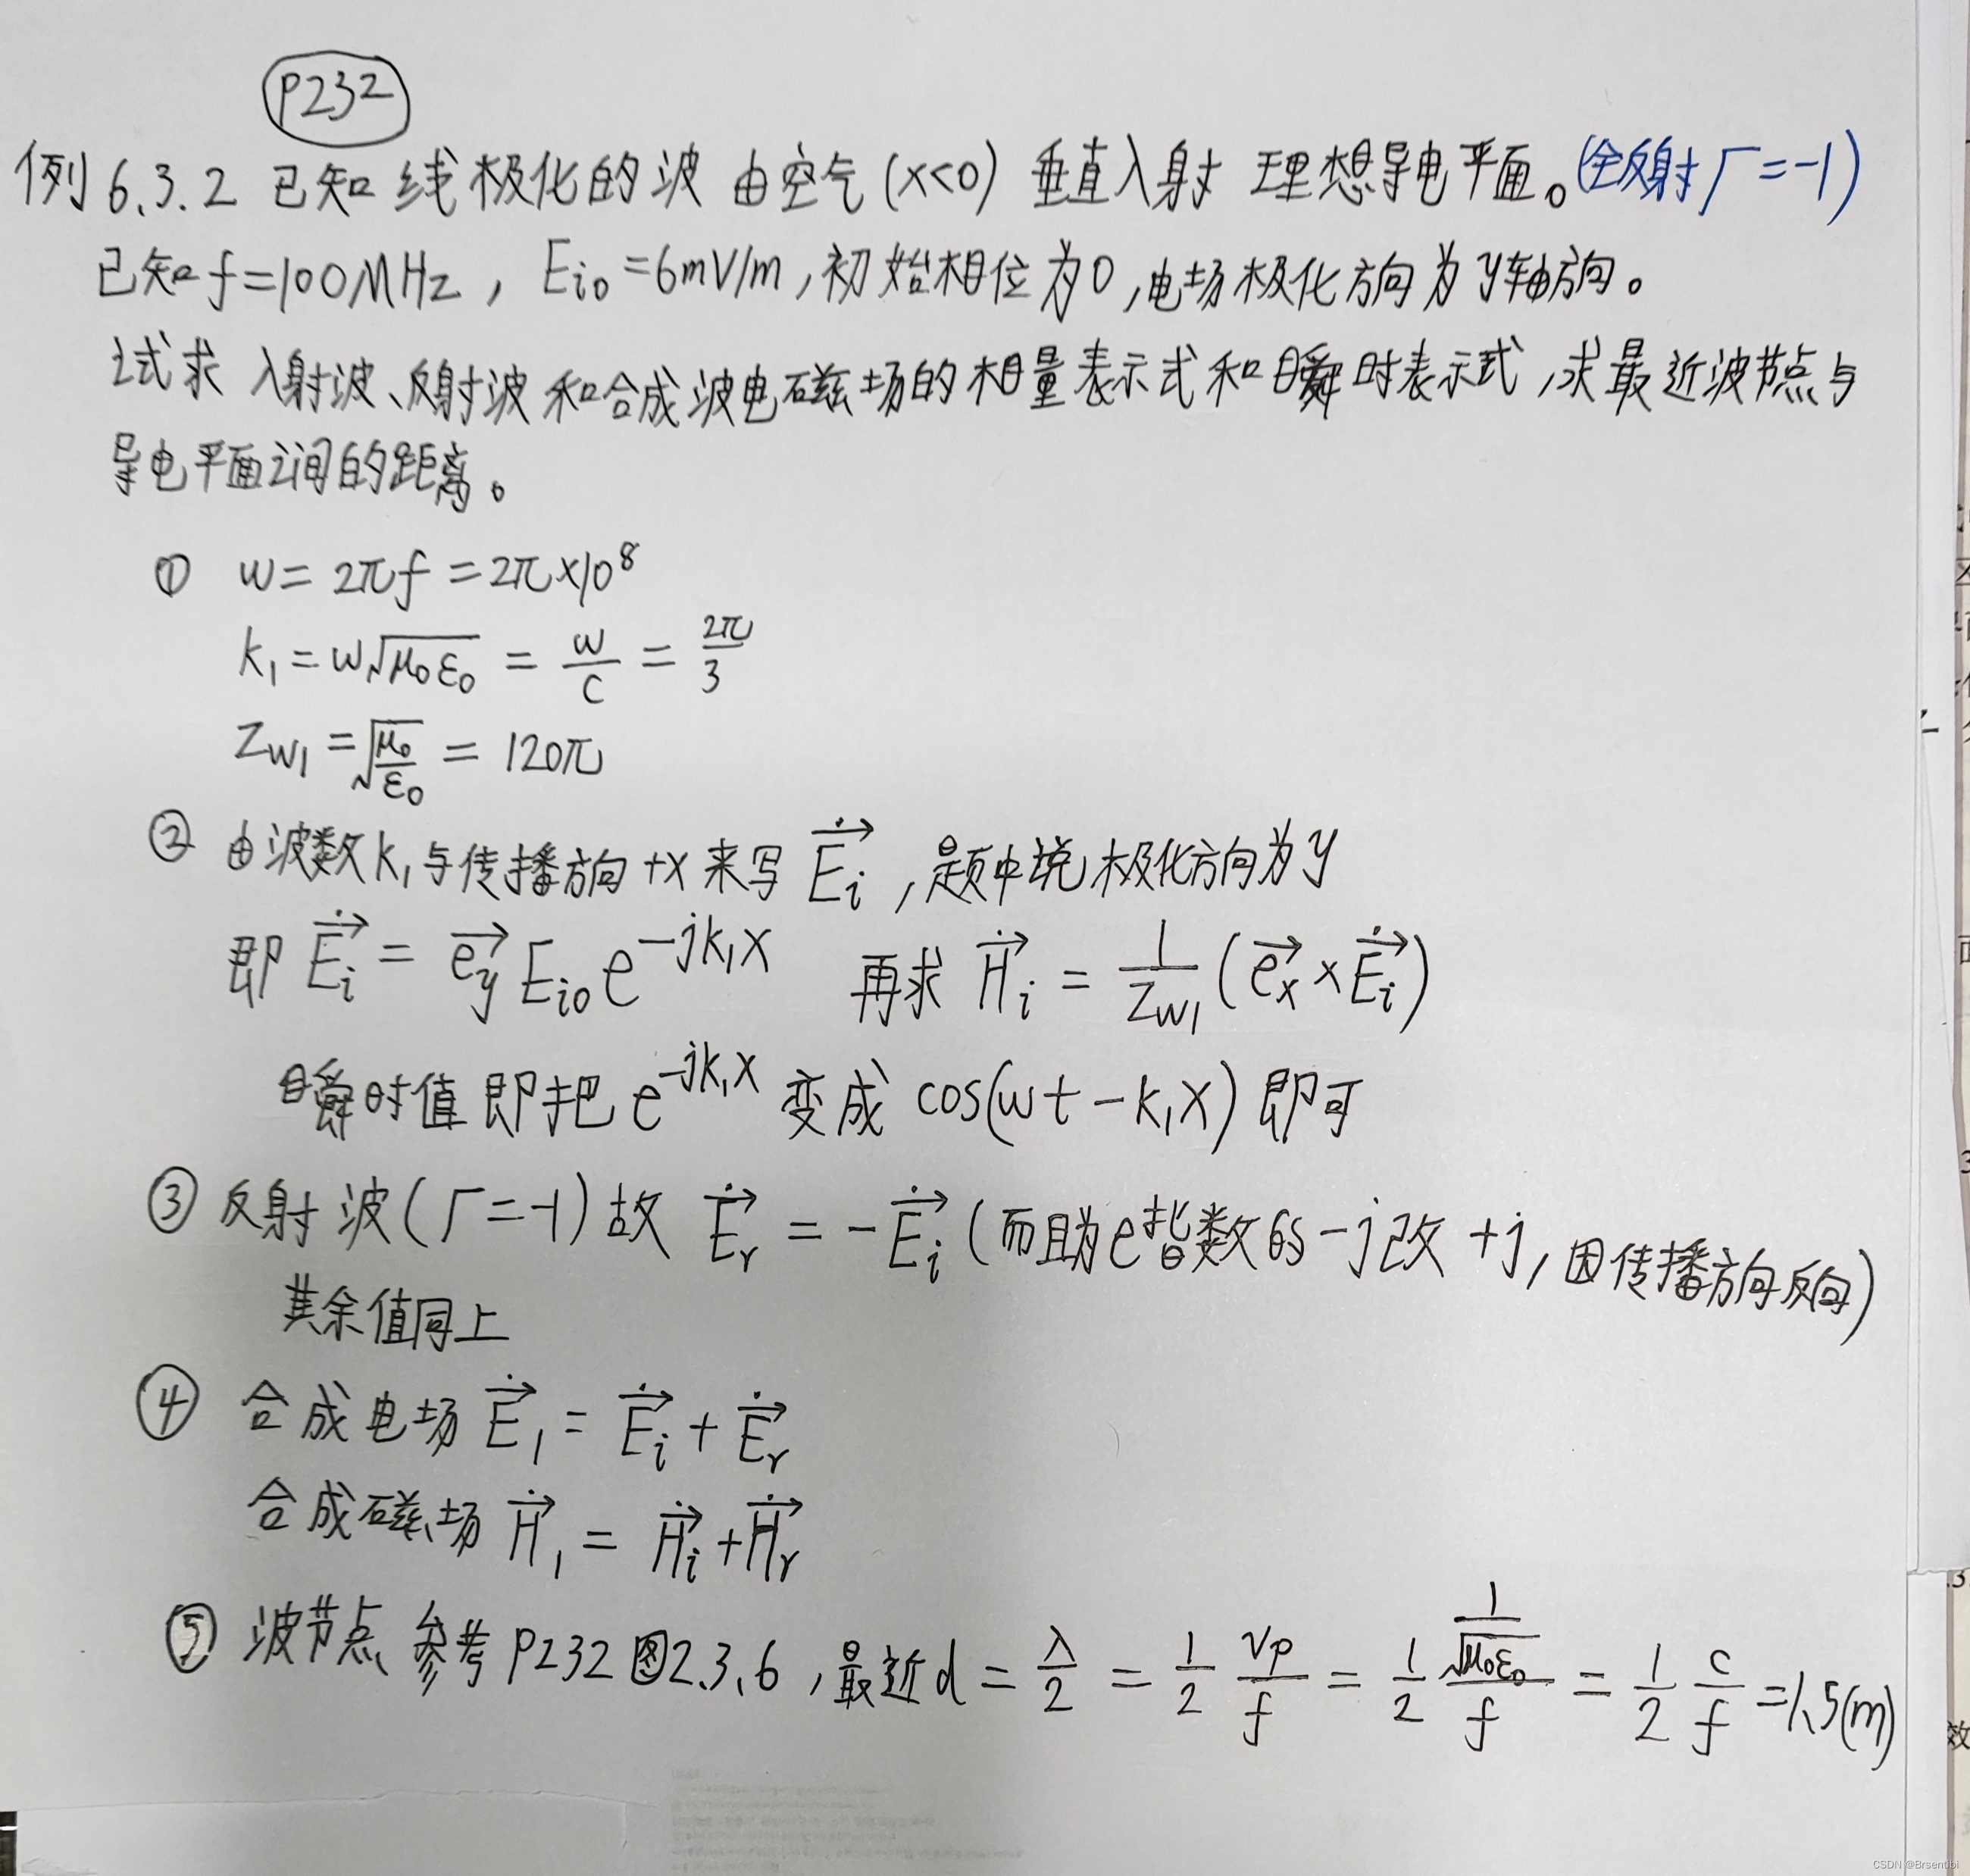 P232
例6.3.2 已知线极化的波 由空气(x<0) 垂直入射 理想导电平面。(全反射Γ=-1)
已知f=100MHz, Ei0=6mV/m,初始相位为0,电场极化方向为y轴方向。
试求 入射波、反射波和合成波电磁场的相量表示式和瞬时表示式,求最近波节点与
导电平面之间的距离。
① w=2πf=2π×10⁸
k₁=w√(μ₀ε₀) = w/c = 2π/3
Zw1=√(μ₀/ε₀) = 120π
② 由波数k₁与传播方向+x来写 Ėi→,题中说极化方向为y
即 Ėi→ = ey→ Ei0 e^(-jk₁x) 再求 Ḣi→ = 1/Zw1 (ex→ × Ėi→)
瞬时值即把e^(-jk₁x) 变成 cos(wt-k₁x) 即可
③ 反射波(Γ=-1)故 Ėr→ = -Ėi→ (而且为e指数的-j改+j,因传播方向反向)
其余值同上
④ 合成电场 Ė₁→ = Ėi→ + Ėr→
合成磁场 Ḣ₁→ = Ḣi→ + Ḣr→
⑤ 波节点 参考P232图2.3.6,最近d = λ/2 = 1/2 vp/f = 1/2 (1/√(μ₀ε₀))/f = 1/2 c/f = 1.5(m)
CSDN @Brsentibi